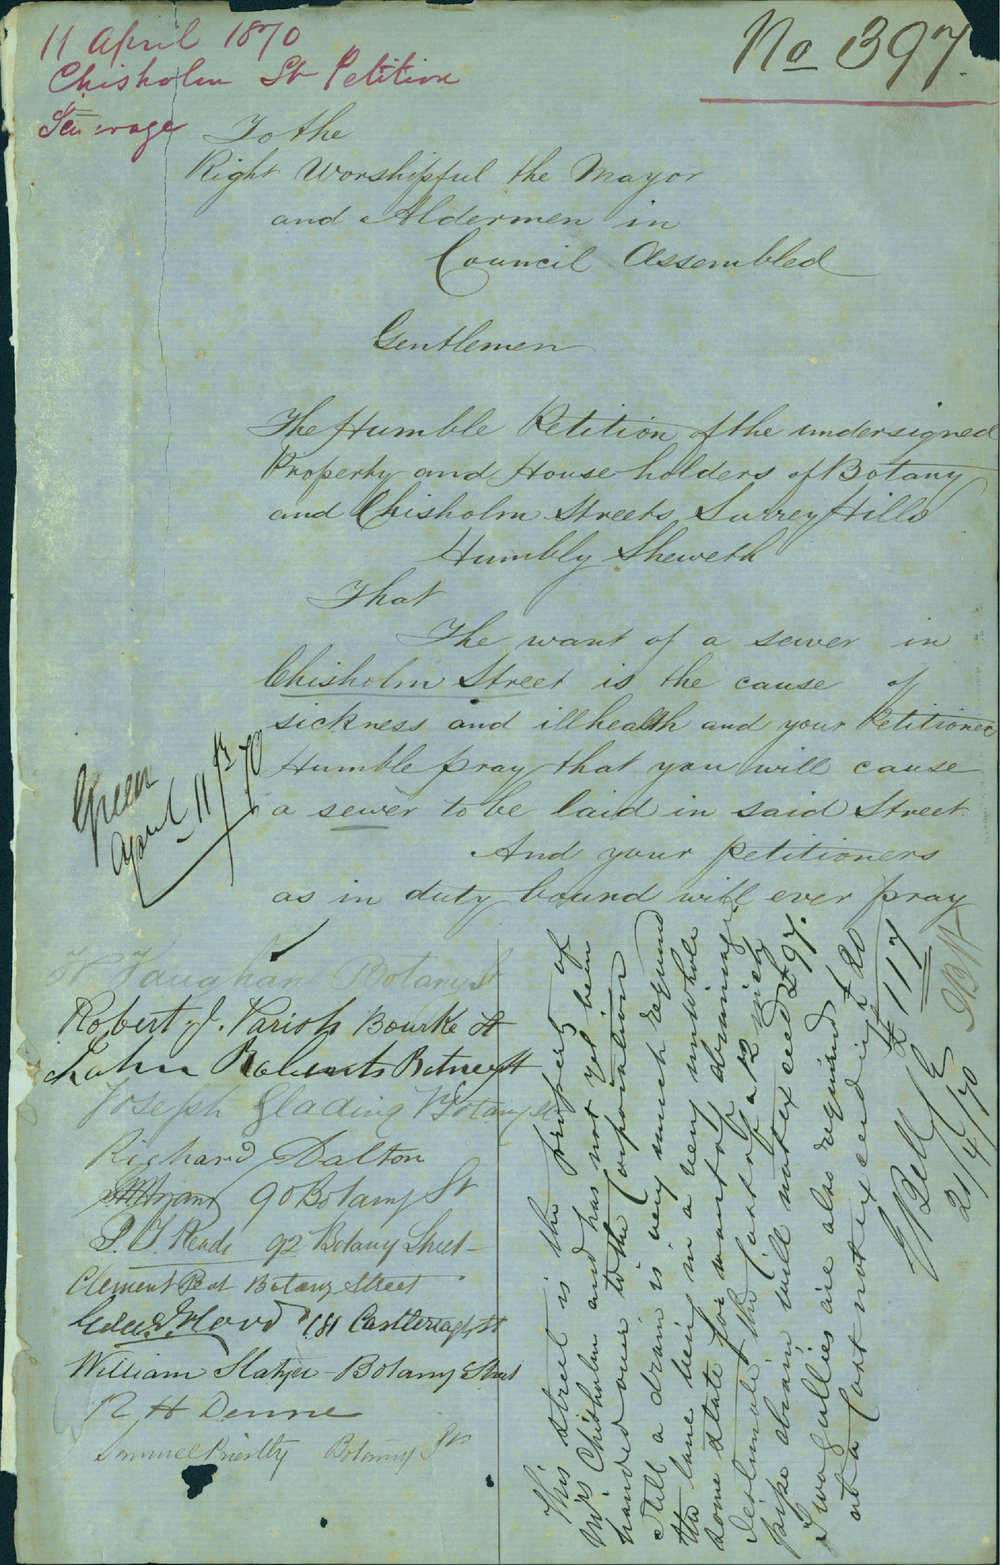 11 April 1870
Chisholm St Petition
Sewerage
No 397.
To the
Right Worshipful the Mayor
and Aldermen in
Council Assembled
Gentlemen
The Humble Petition of the undersigned
Property and House holders of Botany
and Chisholm Streets, Surrey Hills
Humbly Sheweth
That
The want of a sewer in
Chisholm Street is the cause of
sickness and illhealth and your Petitioners
Humble pray that you will cause
a sewer to be laid in said Street.
And your petitioners
as in duty bound will ever pray
Green
April 11th/70
Vaughan Botany St
Robert J. Parish Bourke St
John Roberts Botney St
Joseph Glading Botany St
Richard Dalton
90 Botany St
92 Botany Street
Clement Botany Street
181 Castlereagh St
William Botany Street
R H Denne
Samuel Priestly Botany St
This street is the property of
Mrs Chisholm and has not yet been
handed over to the Corporation
Still a drain is very much required
the lane being in a very unwhole
some state for want of draining.
I estimate the Cost of a 12 inch
pipe drain will not exceed £97.
Two gullies are also required
at a Cost not exceeding £20
£117
E Bell CE
21/4/70